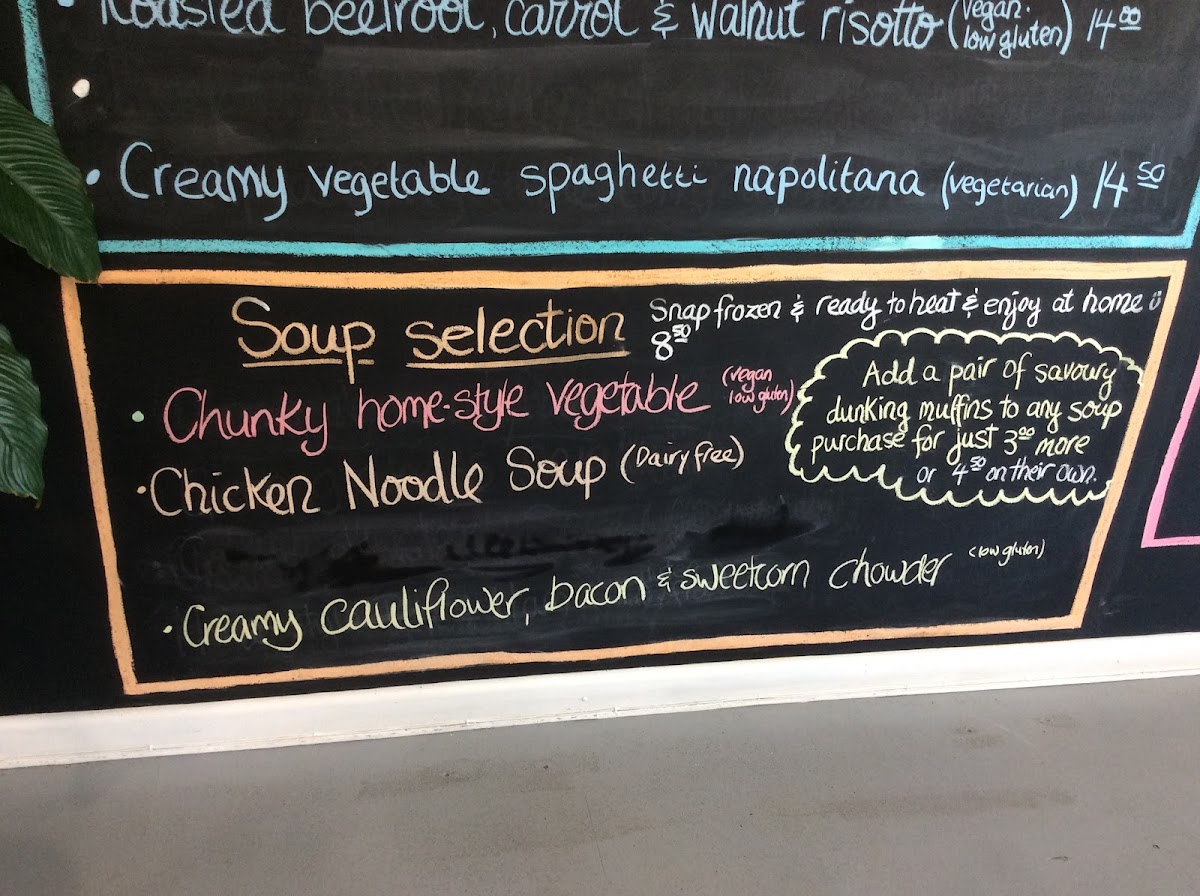 Roasted beetroot, carrot & walnut risotto (vegan. low gluten) 14.00
Creamy vegetable spaghetti napolitana (vegetarian) 14 50
Soup selection
Snap frozen & ready to heat & enjoy at home
8 50
Chunky home-style vegetable (vegan low gluten)
Chicken Noodle Soup (Dairy free)
Creamy cauliflower, bacon & sweetcorn chowder (low gluten)
Add a pair of savoury
dunking muffins to any soup
purchase for just 3 00 more
or 4 50 on their own.